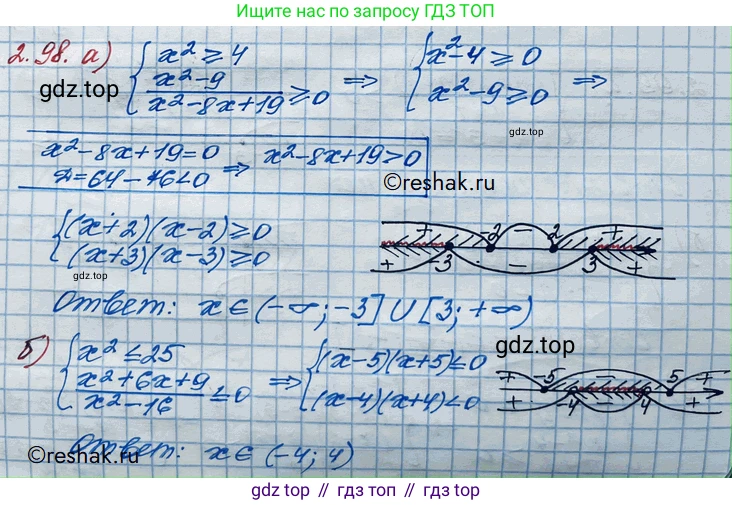 Ищите нас по запросу ГДЗ ТОП
2.98. а) { x² ≥ 4
x²-9 / x²-8x+19 ≥ 0 ⇒ { x²-4 ≥ 0
x²-9 ≥ 0 ⇒
gdz.top
gdz.top
x²-8x+19=0 ⇒ x²-8x+19>0
D=64-76<0
©reshak.ru
{ (x+2)(x-2) ≥ 0
(x+3)(x-3) ≥ 0
gdz.top
+ -2 - 2 +
-3 - 3 +
Ответ: x ∈ (-∞; -3] ∪ [3; +∞)
б) { x² ≤ 25
x²+6x+9 / x²-16 ≤ 0 ⇒ { (x-5)(x+5) ≤ 0
(x-4)(x+4) < 0
gdz.top
+ -5 - 5 +
+ -4 - 4 +
Ответ: x ∈ (-4; 4)
©reshak.ru
gdz top // гдз топ // gdz.top